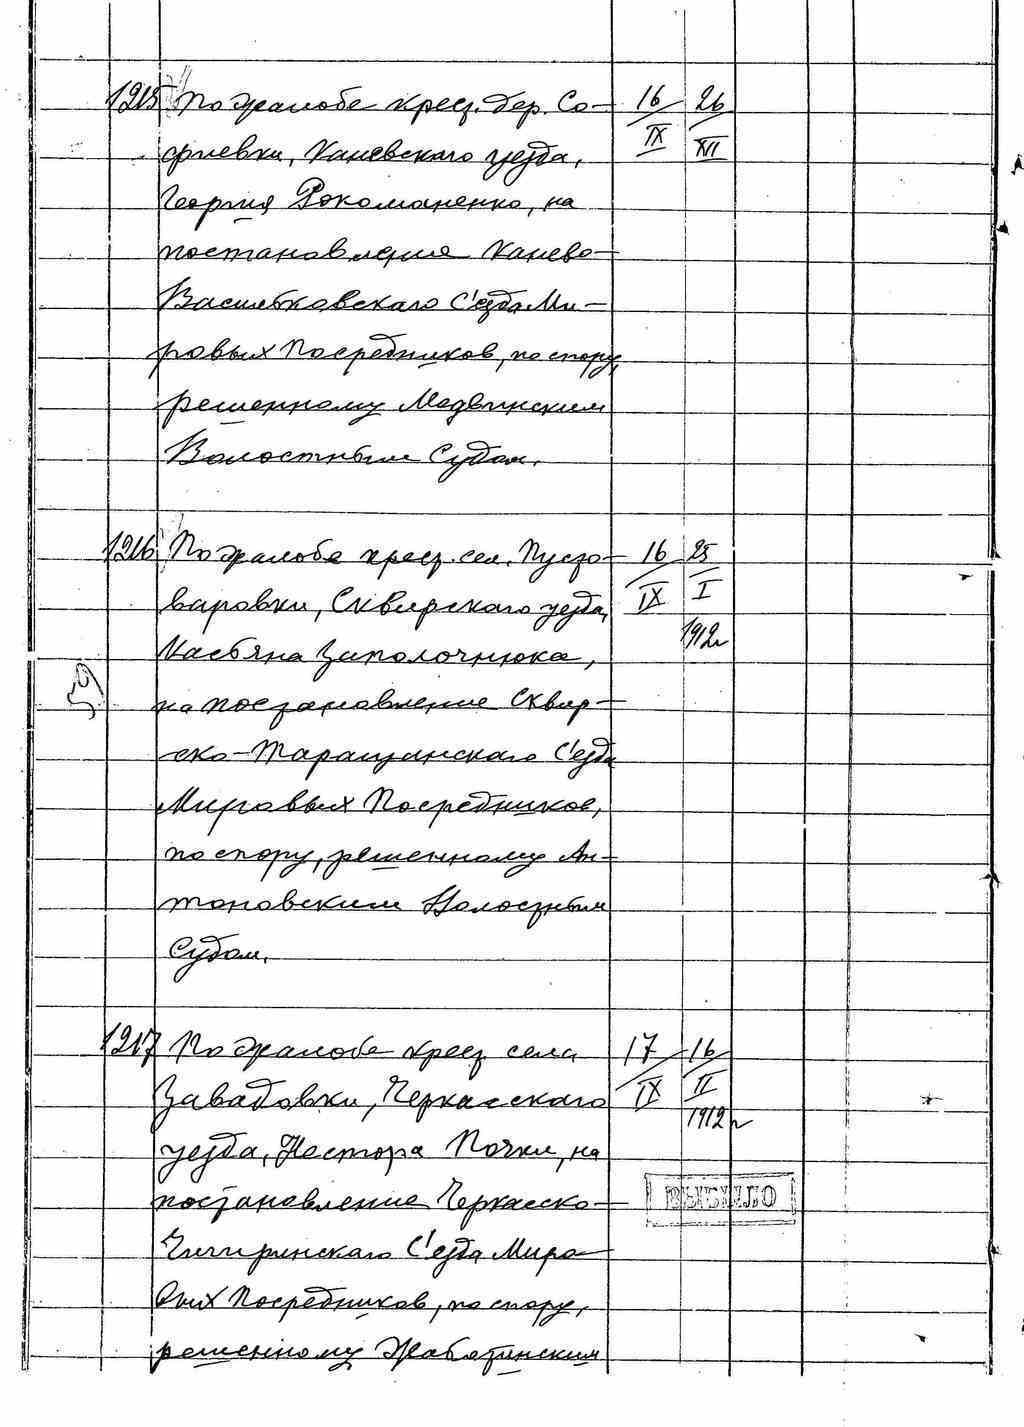 1215 По жалобе крест. дер. Со- 16 26
фиевки, Каневского уезда, IX XII
Георгия Рокоманенко, на
постановления Канево-
Васильковскаго С'езда Ми-
ровых Посредников, по спору,
решенному Медвинским
Волостным Судом.
1216 По жалобе крест. сел. Пусто- 16 25
варовки, Сквирскаго уезда, IX I
1912г
Касьяна Заполочнюка,
59
на постановление Сквир-
ско-Таращанскаго С'езда
Мировых Посредников,
по спору, решенному Ан-
тоновским Волостным
Судом.
1217 По жалобе крест. села 17 16
Завадовки, Черкасскаго IX II
1912г
уезда, Нестора Почки, на
постановление Черкасско- ВЫБЫЛО
Чигиринскаго С'езда Миро-
вых Посредников, по спору,
решенному Жаботинским